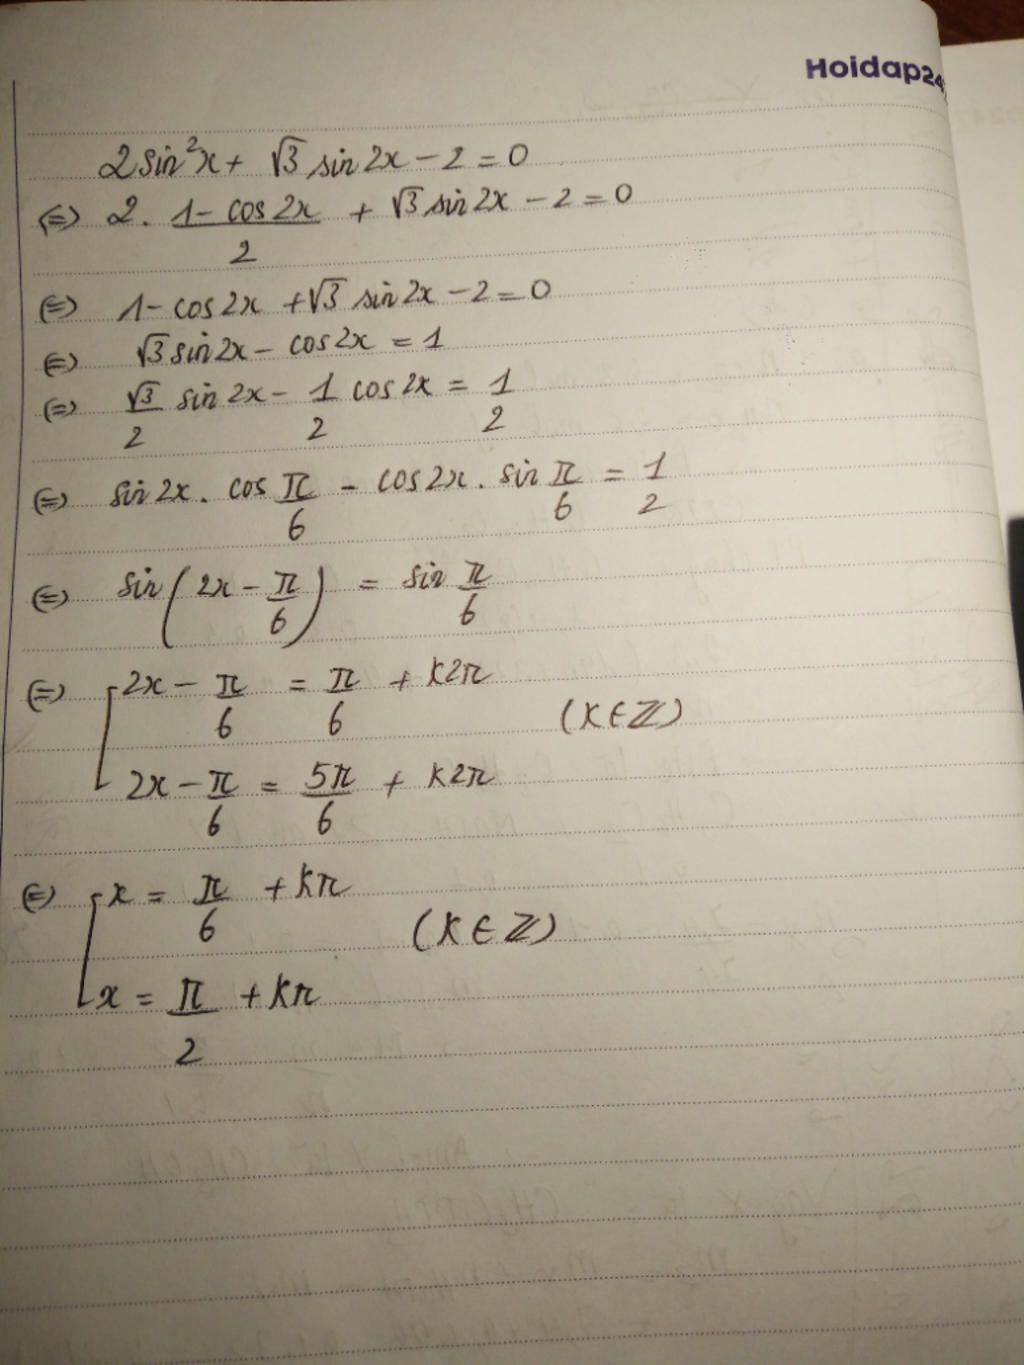 Hoidap24
2sin²x + √3 sin2x - 2 = 0
(=) 2. (1 - cos2x)/2 + √3 sin2x - 2 = 0
(=) 1 - cos2x + √3 sin2x - 2 = 0
(=) √3 sin2x - cos2x = 1
(=) √3/2 sin2x - 1/2 cos2x = 1/2
(=) sin2x . cos π/6 - cos2x . sin π/6 = 1/2
(=) sin(2x - π/6) = sin π/6
(=) [ 2x - π/6 = π/6 + k2π
(k ∈ ℤ)
2x - π/6 = 5π/6 + k2π
(=) [ x = π/6 + kπ
(k ∈ ℤ)
x = π/2 + kπ